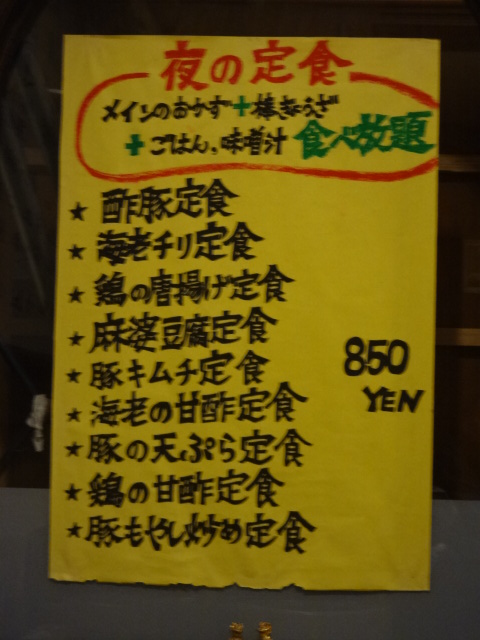 夜の定食
メインのおかず+棒ぎょうざ
+ごはん、味噌汁 食べ放題
★ 酢豚定食
★ 海老チリ定食
★ 鶏の唐揚げ定食
★ 麻婆豆腐定食
★ 豚キムチ定食
★ 海老の甘酢定食
★ 豚の天ぷら定食
★ 鶏の甘酢定食
★ 豚もやし炒め定食
850
YEN